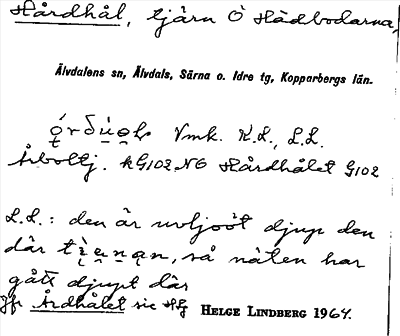 Hårdhål, tjärn Ö Hådbodarna,
Älvdalens sn, Älvdals, Särna o. Idre tg, Kopparbergs län.
Vmk. K.L., L.L.
kG102 NO Hårdhålet G102
L.L.: den är djup den
där så näten har
gått djupt där
Jfr Årdhålet sic Hg HELGE LINDBERG 1964.